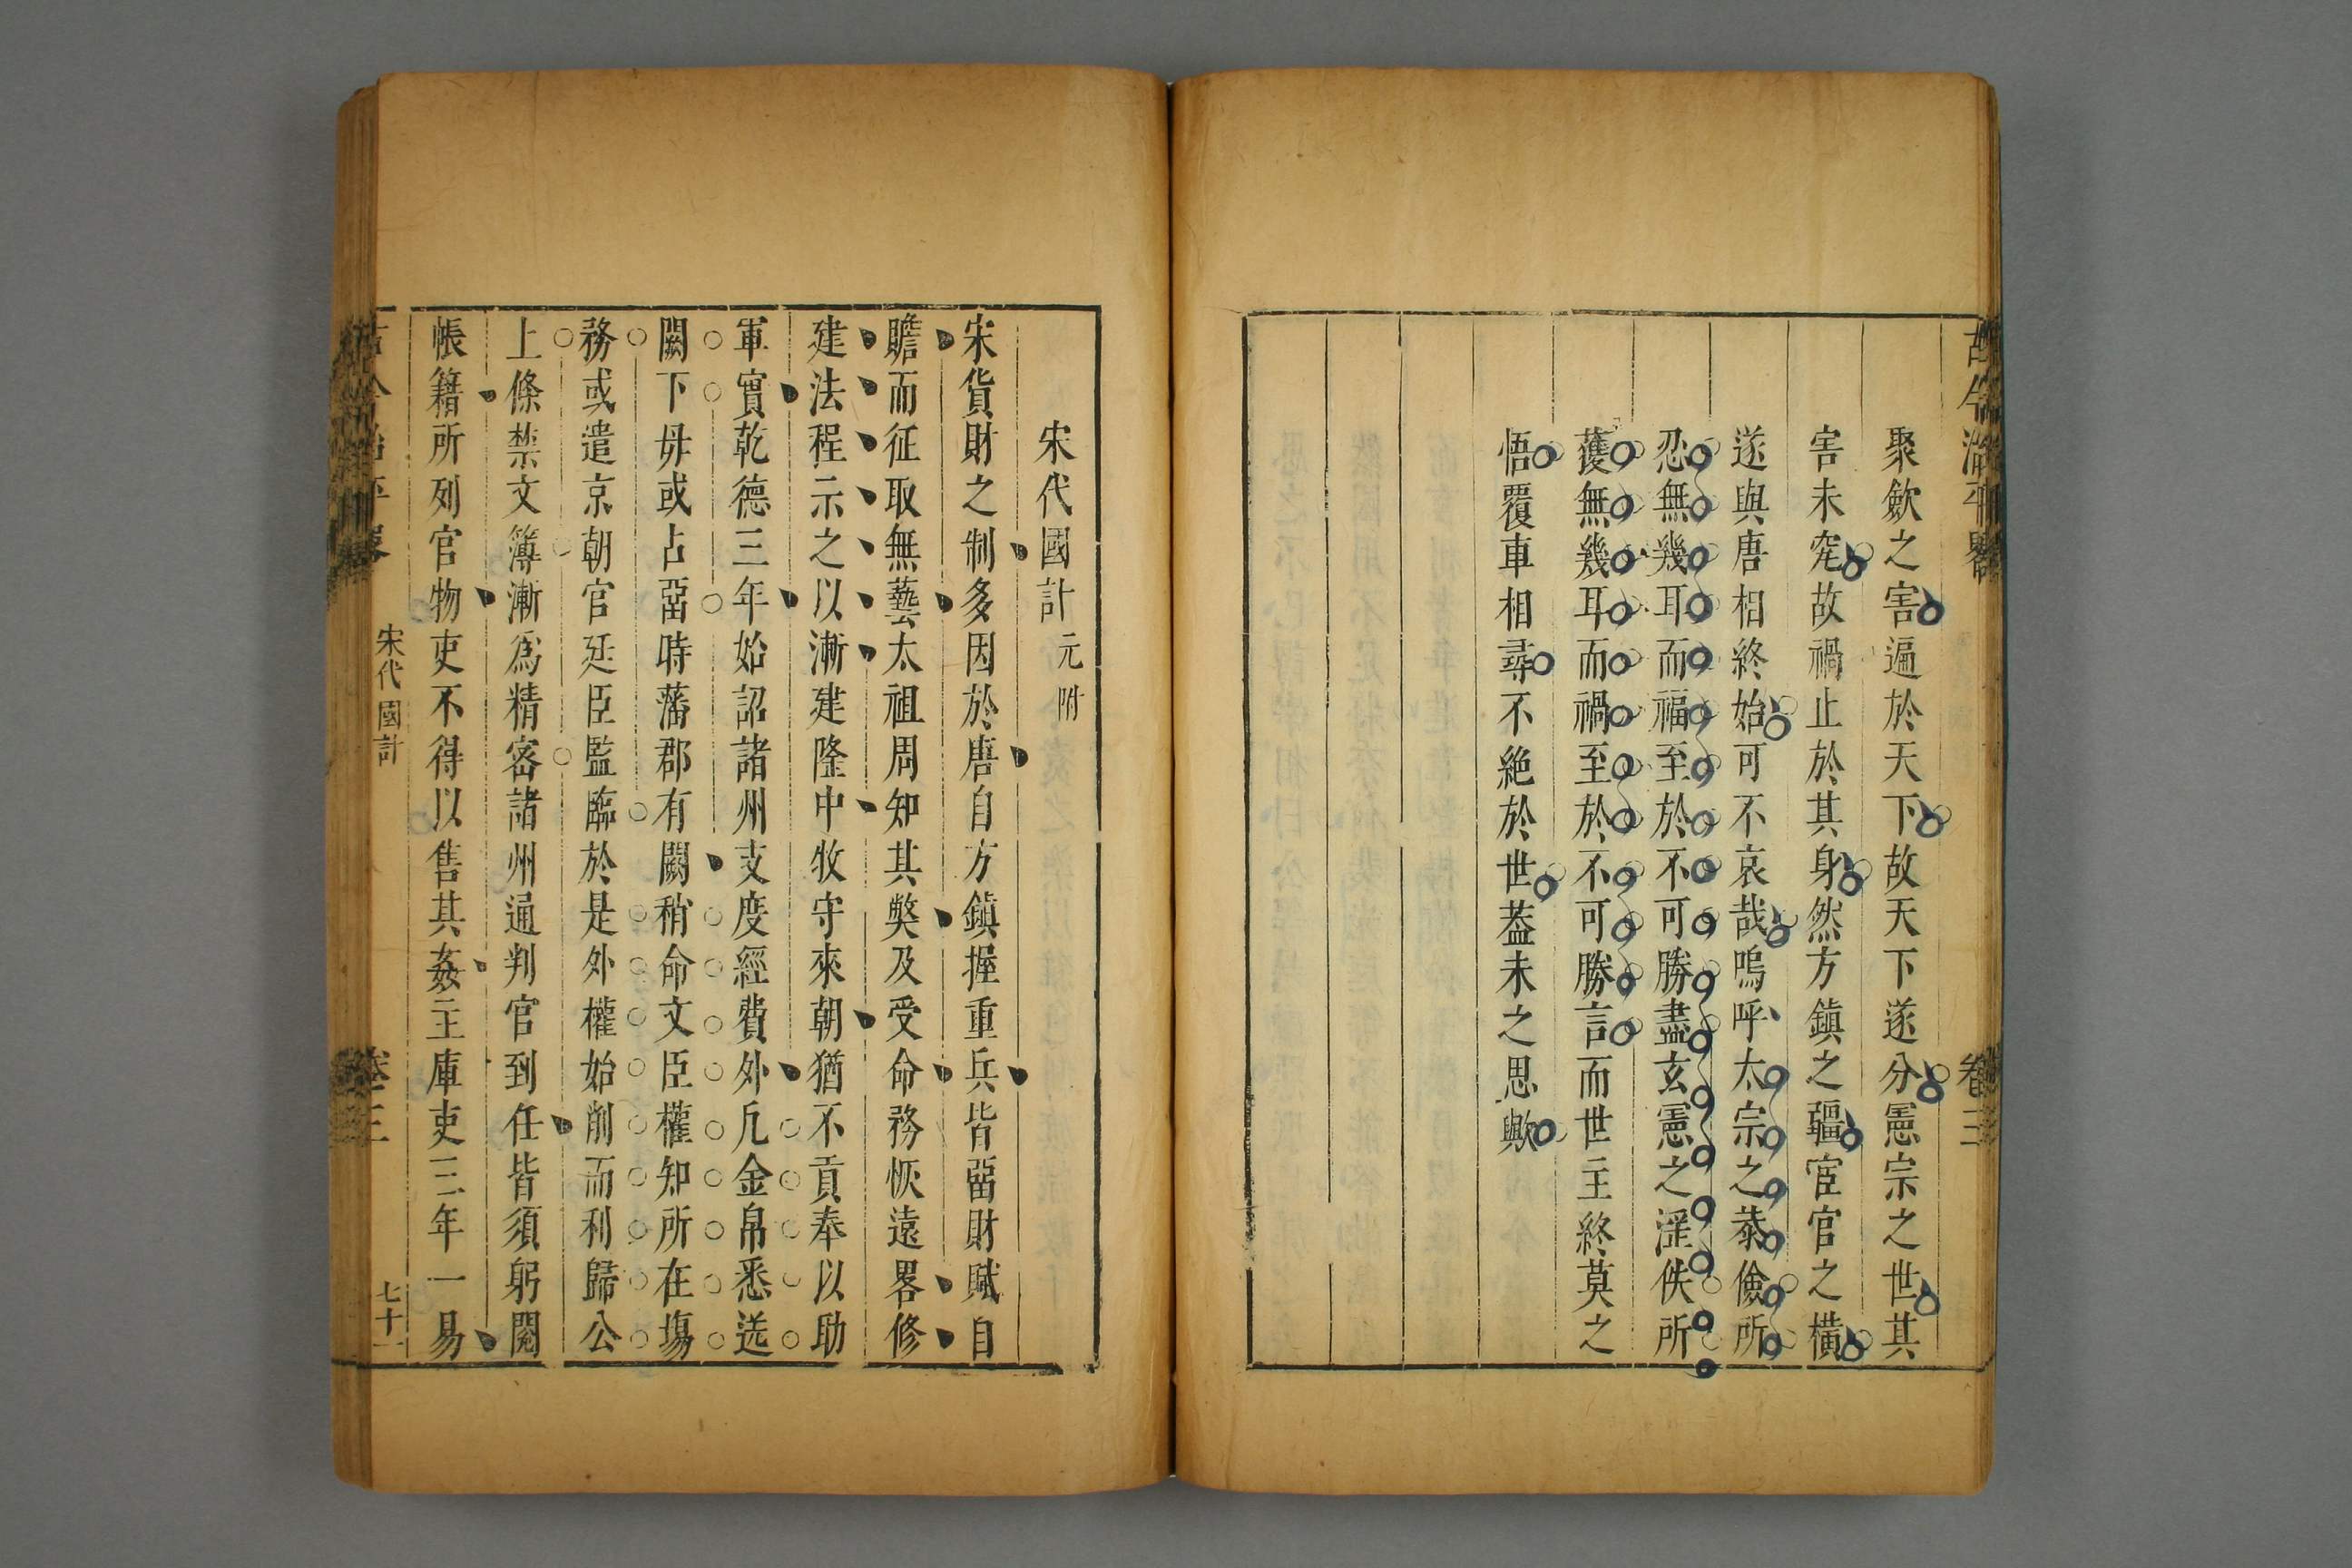 古今治平畧 卷三
聚歛之害遍於天下故天下遂分憲宗之世其
害未究故禍止於其身然方鎮之疆宦官之橫
遂與唐相終始可不哀哉嗚呼太宗之恭儉所
忍無幾耳而福至於不可勝盡玄憲之淫佚所
獲無幾耳而禍至於不可勝言而世主終莫之
悟覆車相尋不絶於世葢未之思歟
宋代國計 元附
宋貨財之制多因於唐自方鎮握重兵皆畱財賦自
贍而征取無藝太祖周知其獘及受命務恢遠畧修
建法程示之以漸建隆中牧守來朝猶不貢奉以助
軍實乾德三年始詔諸州支度經費外凡金帛悉送
闕下毋或占畱時藩郡有闕稍命文臣權知所在塲
務或遣京朝官廷臣監臨於是外權始削而利歸公
上條禁文簿漸爲精宻諸州通判官到任皆須躬閱
帳籍所列官物吏不得以售其姦主庫吏三年一易
古今治平畧 宋代國計 卷三 七十一